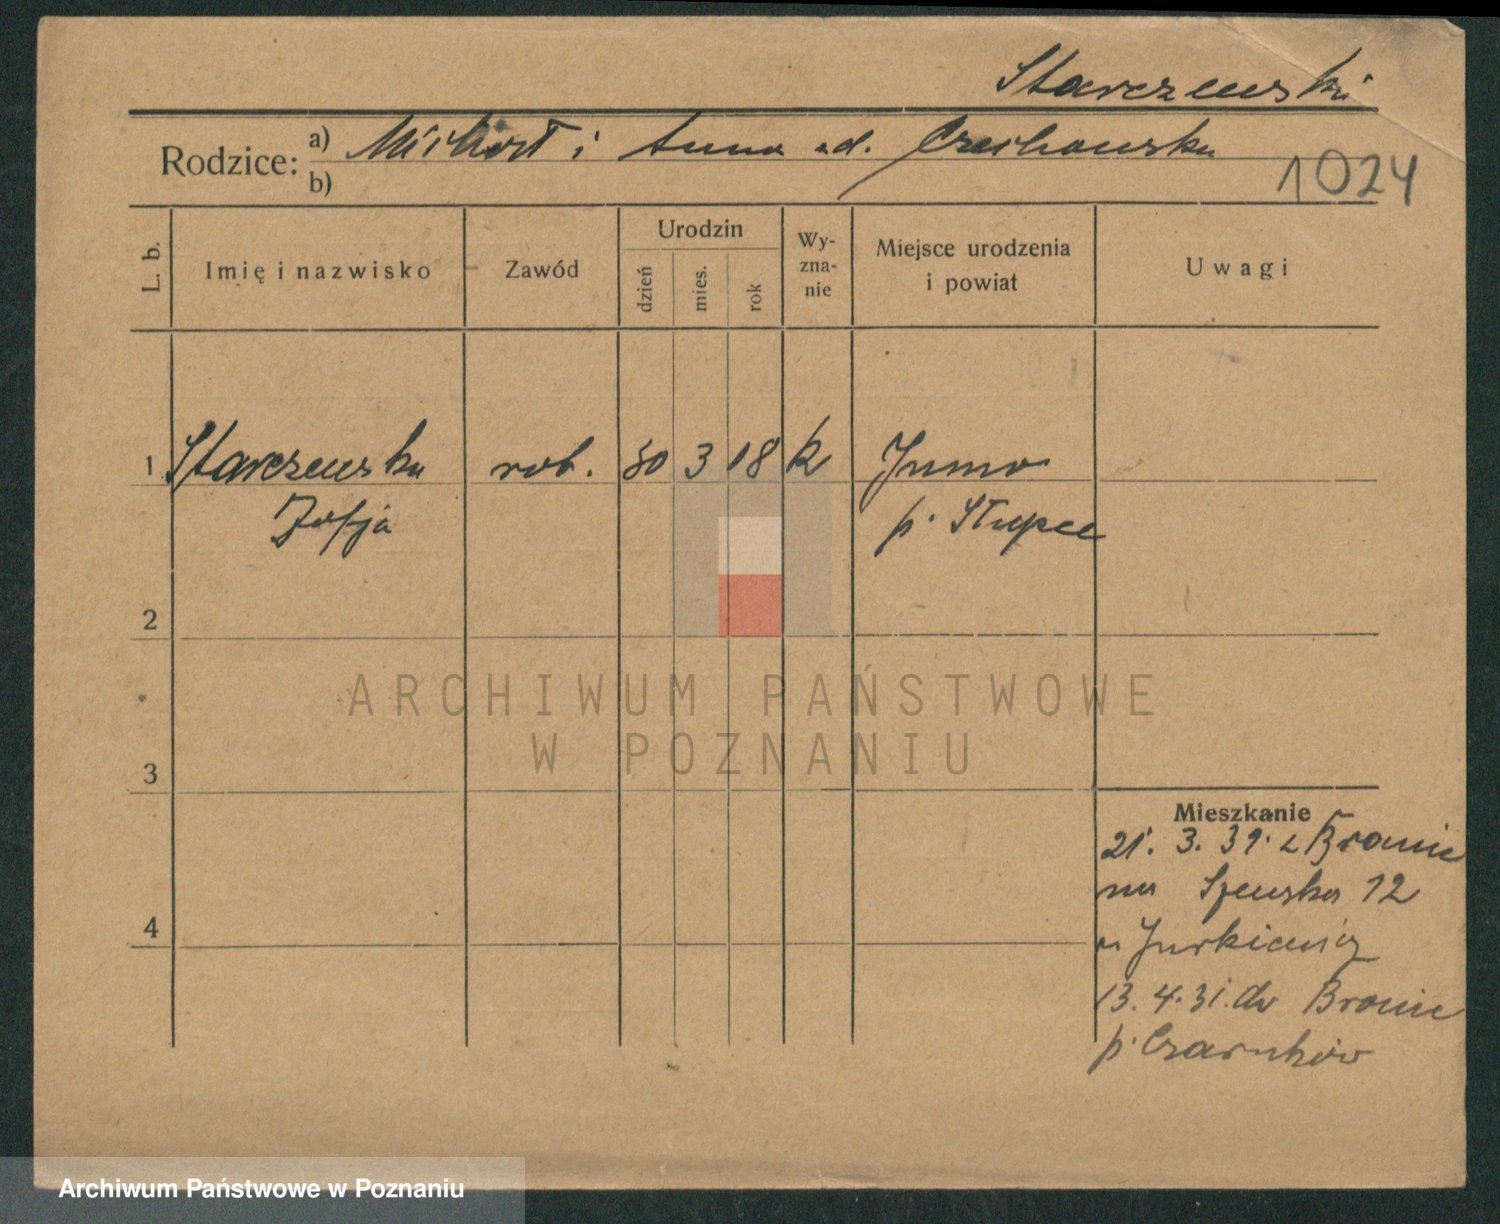 Starczewski
Rodzice: a) Michał i Anna z d. Czechowska
b)
1024
L. b. Imię i nazwisko Zawód Urodzin dzień mies. rok Wy-zna-nie Miejsce urodzenia i powiat Uwagi
1 Starczewska rob. 30 3 18 k
Zofja p. Słupca
2
ARCHIWUM PAŃSTWOWE
W POZNANIU
3
4
Mieszkanie
21. 3. 39. z Bronic
na Szewska 12
u Jurkiewicz
13. 4. 31. do Bronic
p. Czarnków
Archiwum Państwowe w Poznaniu